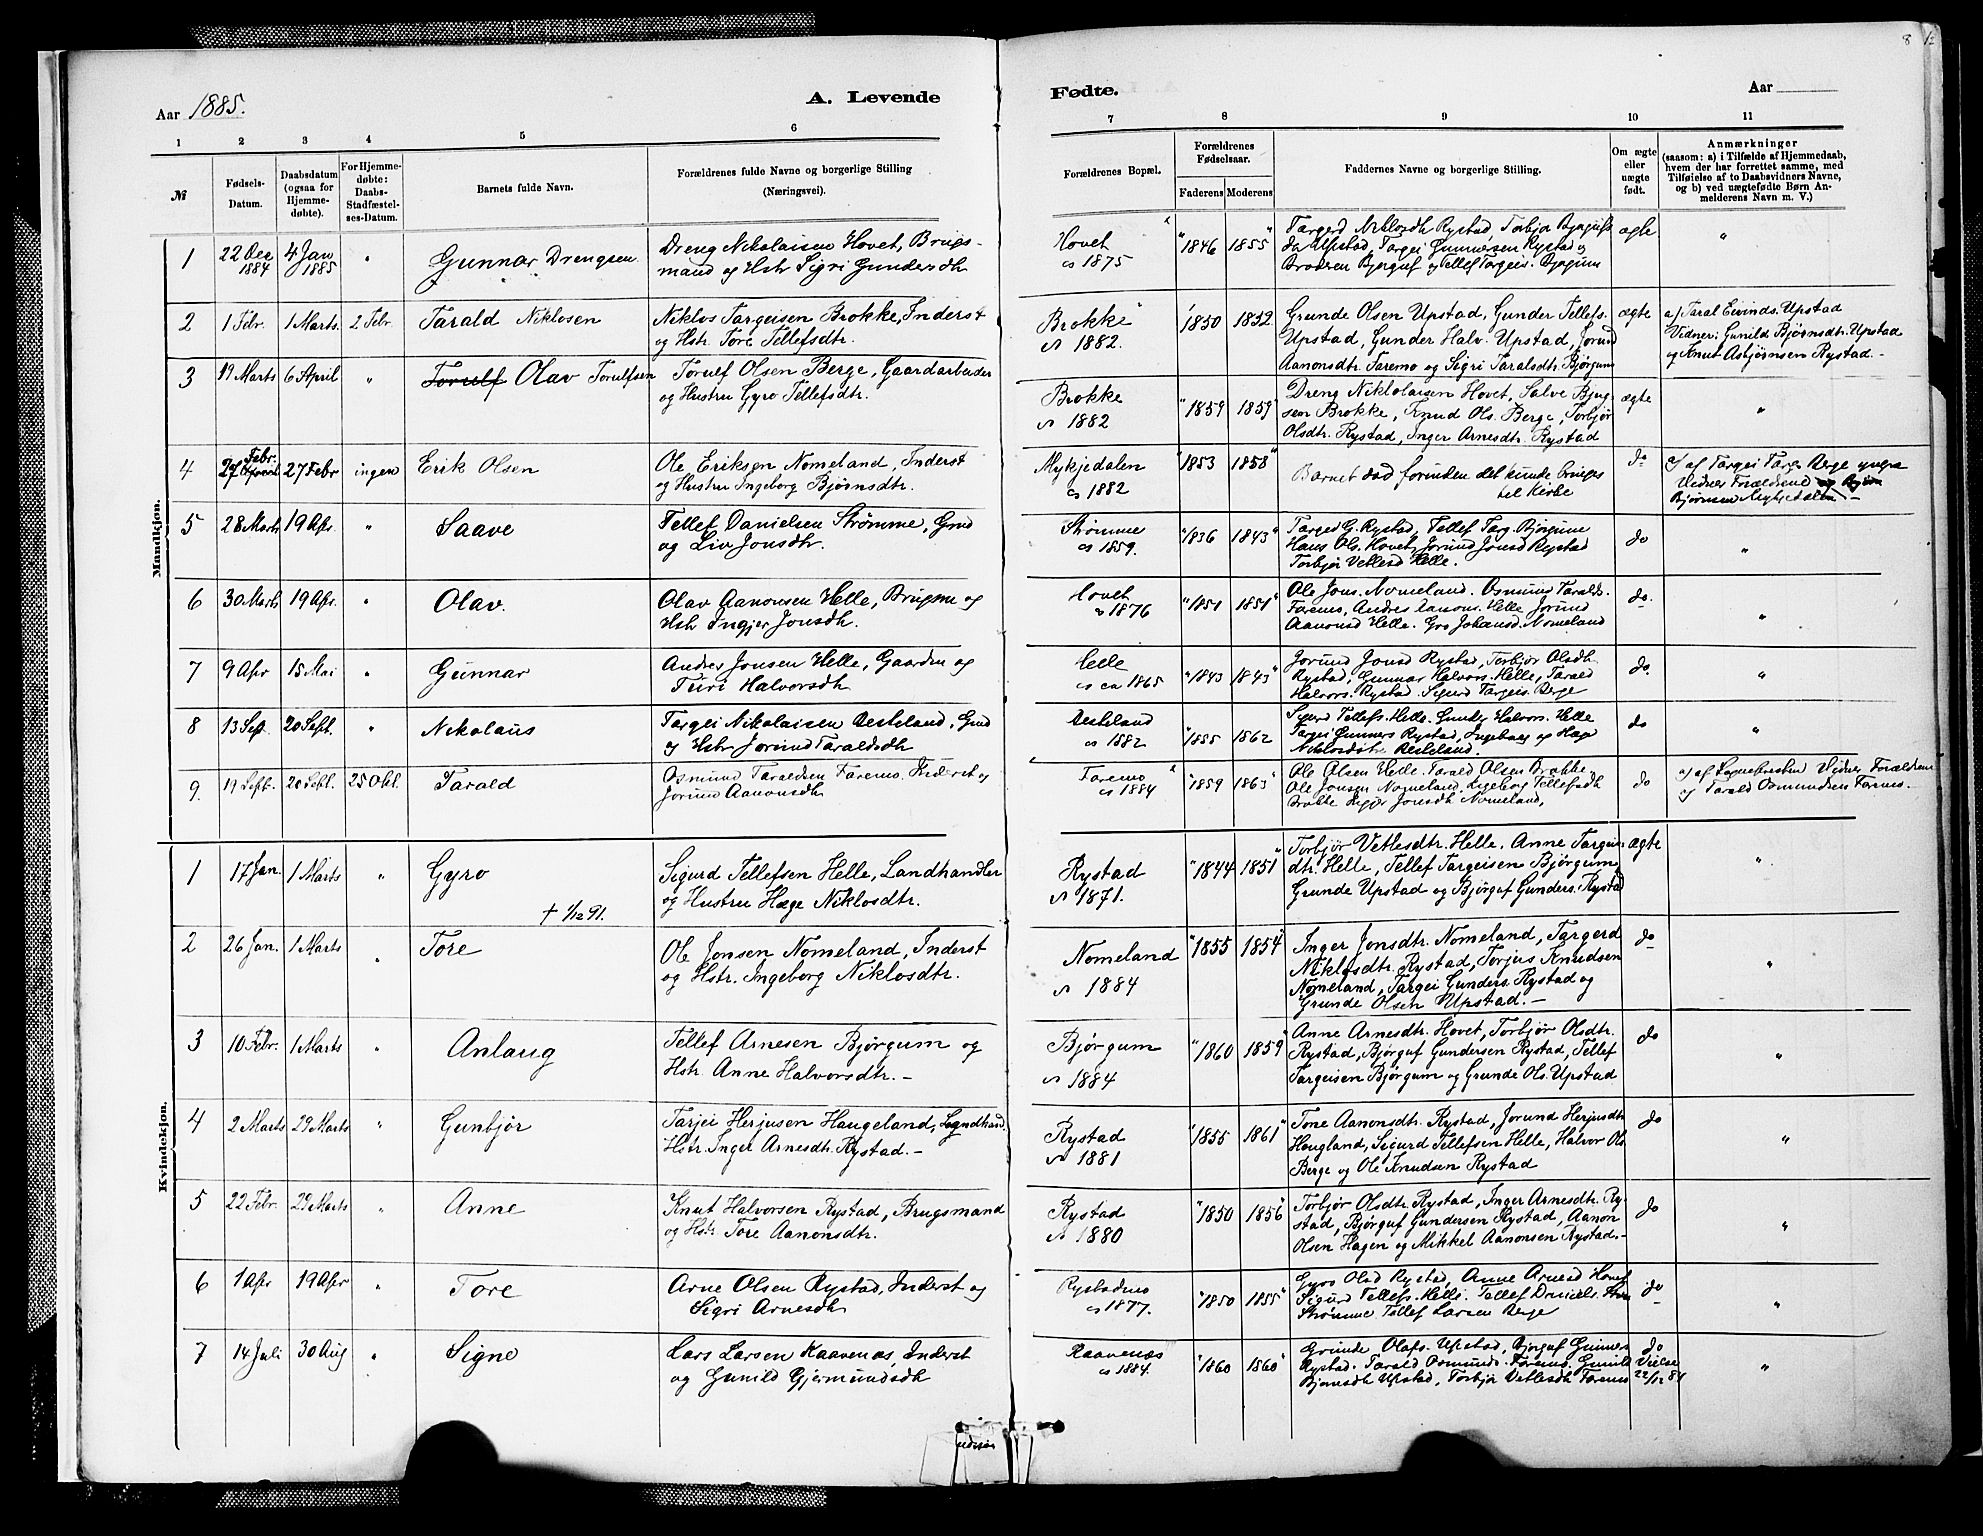 8
Aar 1885.
A. Levende
Fødte.
Aar
1 2 3 4 5 6 7 8 9 10 11
№
Fødsels-
Datum.
Daabsdatum
(ogsaa for
Hjemme-
døbte).
For Hjemme-
døbte:
Daabs-
Stadfæstel-
ses-Datum.
Barnets fulde Navn.
Forældrenes fulde Navne og borgerlige Stilling
(Næringsvei).
Forældrenes Bopæl.
Forældrenes
Fødselsaar.
Faderens Moderens
Faddernes Navne og borgerlige Stilling.
Om ægte
eller
uægte
født.
Anmærkninger
(saasom: a) i Tilfælde af Hjemmedaab,
hvem der har forrettet samme, med
Tilføielse af to Daabsvidners Navne,
og b) ved uægtefødte Børn An-
melderens Navn m. V.)
Mandkjøn.
1
22 Dec
1884
4 Jan
1885
"
Gunnar Drengsen
Dreng Nikolaisen Hovet, Brugs-
mand og Hstr Sigri Gundersdh
Hovet
1875
1846 1855
Targerd Niklosdh Rystad, Torbjør
Upstad, Targei Gunnersen Rystad
Brodsen Bjørguf og Tellef Targeis. Bjørgum
ægte
"
2
1 Febr.
1 Marts.
2 Febr
Tarald Niklosen
Niklos Targeisen Brokke, Inderst
og Hstr. Tore Tellefsdtr.
Brokke
1882.
1850 1852
Grunde Olsen Upstad, Gunder Tellefs.
Upstad, Gunder Halv. Upstad, Jorund
Aanonsdtr. Faremo og Sigri Taralsdtr. Bjørgum
ægte
a/ Taral Eivinds. Upstad
Vidner: Gunild Bjørnsdtr. Upstad
og Knut Asbjørnsen Rystad.-
3
19 Marts
6 April
"
Torulf Olav Torulfsen
Torulf Olsen Berge, Gaardarbeider
og Hustru Gyro Tellefsdtr.
Brokke
1882
1859 1859
Dreng Niklolaisen Hovet, Salve Bjug-
sen Brokke, Knud Ols. Berge, Torbjør
Olsdtr. Rystad, Inger Arnesdtr. Rystad
ægte
"
4
Febr.
27 Febr
ingen
Erik Olsen
Ole Eriksen Nomeland, Inderst
og Hustru Ingeborg Bjørnsdtr.
Mykjedalen
1882
1853 1858
Barnet død forinden det kunde bringes
til Kirke
do
af Targei Targ. Berge yngre
Bjørnsen Mykjedalen
5
28 Marts
19 Apr.
"
Saave
Tellef Danielsen Strømme, Gmd
og Liv Jonsdtr.
Strømme
1859.
1836 1843
Targed G. Rystad, Tellef Targ. Bjørgum
Hans Ols. Hovet, Jorund Jonsd Rystad
Torbjør Vetlesd Helle.
do
"
6
30 Marts
19 Apr.
"
Olav.
Olav Aanonsen Helle, Brugsm og
Hstr Ingjer Jonsdh.
Hovet
1876
1851 1851
Ole Jons. Nomeland. Osmund Taralds.
Faremo, Andres Aanons. Helle Jorund
Aanonsd Helle. Gro Johansd. Nomeland
do.
"
7
9 Apr
15 Mai
"
Gunnar
Andres Jonsen Helle, Gaardm og
Turi Halvorsdh
Helle
ca 1865
1843 1843
Jorund Jonsd Rystad, Torbjør Olsdh
Rystad, Gunnar Halvors. Helle, Tarald
Halvors. Rystad. Sigurd Targeis. Berge
do.
"
8
13 Sept
20 Sept.
"
Nikolaus
Targei Nikolaisen Besteland, Gmd
og Hstr Jorund Taraldsdh
Besteland
1882
1855 1862
Sigurd Tellefs. Helle. Gunder Halvors. Helle
Targei Gunners Rystad, Ingeborg og Hæge
Niklosdøtr Besteland.
do
"
9.
19 Septbr.
20 Septbr.
25 Okt.
Tarald
Osmund Taraldsen Faremo, Inderst og
Jorund Aanonsdh
Faremo
1884
1859 1863
Ole Olsen Helle. Tarald Olsen Brokke
Ole Jonsen Nomeland. Ingeborg Tellefsdh
Brokke Jonsdh Nomeland,
do
a/ af Sognepresten Vidner Forældrene
og Tarald Osmundsen Faremo.
Kvindekjøn.
1
17 Jan.
1 Marts
"
Gyro
† 1/12 91.
Sigurd Tellefsen Helle, Landhandler
og Hustru Hæge Niklosdtr.
Rystad
1871.
1844 1851
Torbjør Vetlesdtr. Helle. Anne Targeis-
dtr. Helle, Tellef Targeisen Bjørgum,
Grunde Upstad og Bjørguf Gunders. Rystad
ægte
"
2
26 Jan.
1 Marts
"
Tore
Ole Jonsen Nomeland, Inderst
og Hstr. Ingeborg Niklosdtr.
Nomeland
1884
1855 1854
Inger Jonsdtr. Nomeland, Targerd
Niklosdtr. Rystad, Torjus Knudsen
Nomeland, Targei Gunders. Rystad og
Grunde Olsen Upstad.-
do
"
3
10 Febr.
1 Marts
"
Anlaug
Tellef Arnesen Bjørgum og
Hstr. Anne Halvorsdtr.-
Bjørgum
1884
1860 1859
Anne Arnesdtr. Hovet, Torbjør Olsdtr.
Rystad, Bjørguf Gundersen Rystad, Tellef
Targeisen Bjørgum og Grunde Ols. Upstad
do
"
4
2 Marts
29 Marts
"
Gunbjør
Tarjei Herjusen Haugeland, Landhand.
Hstr. Inger Arnesdtr. Rystad.-
Rystad
1881
1855 1861
Tone Aanonsdtr. Rystad, Jorund Herjusdtr
Haugland, Sigurd Tellefsen Helle, Halvor Ols.
Berge og Ole Knudsen Rystad
do
"
5
22 Febr.
29 Marts
"
Anne
Knut Halvorsen Rystad, Brugsmand
og Hstr. Tore Aanonsdtr.
Rystad
1880
1850 1856
Torbjør Olsdtr. Rystad, Inger Arnesdtr. Ry-
stad, Bjørguf Gundersen Rystad, Aanon
Olsen Hagen og Mikkel Aanonsen Rystad.-
do
"
6
1 Apr
19 Apr
"
Tore
Arne Olsen Rystad, Inderst og
Sigri Arnesdh
Rystadmo
1877.
1850 1855
Gyro Olsd Rystad, Anne Arnesd Hovet
Sigurd Tellefs. Helle. Tellef Daniels.
Strømme Tellef Larsen Berge
do
"
7
14 Juli
30 Aug
"
Signe
Lars Larsen Raavenæs, Inderst
og Gunild Gjermundsdh
Raavenæs
1884.
1860 1860
Grunde Olafs. Upstad, Bjørguf Gunners
Rystad. Tarald Osmunds. Faremo, Gunild
Bjørnsdh Upstad, Torbjør Vetlesdh Faremo
do
Vielse
22/12 84
"